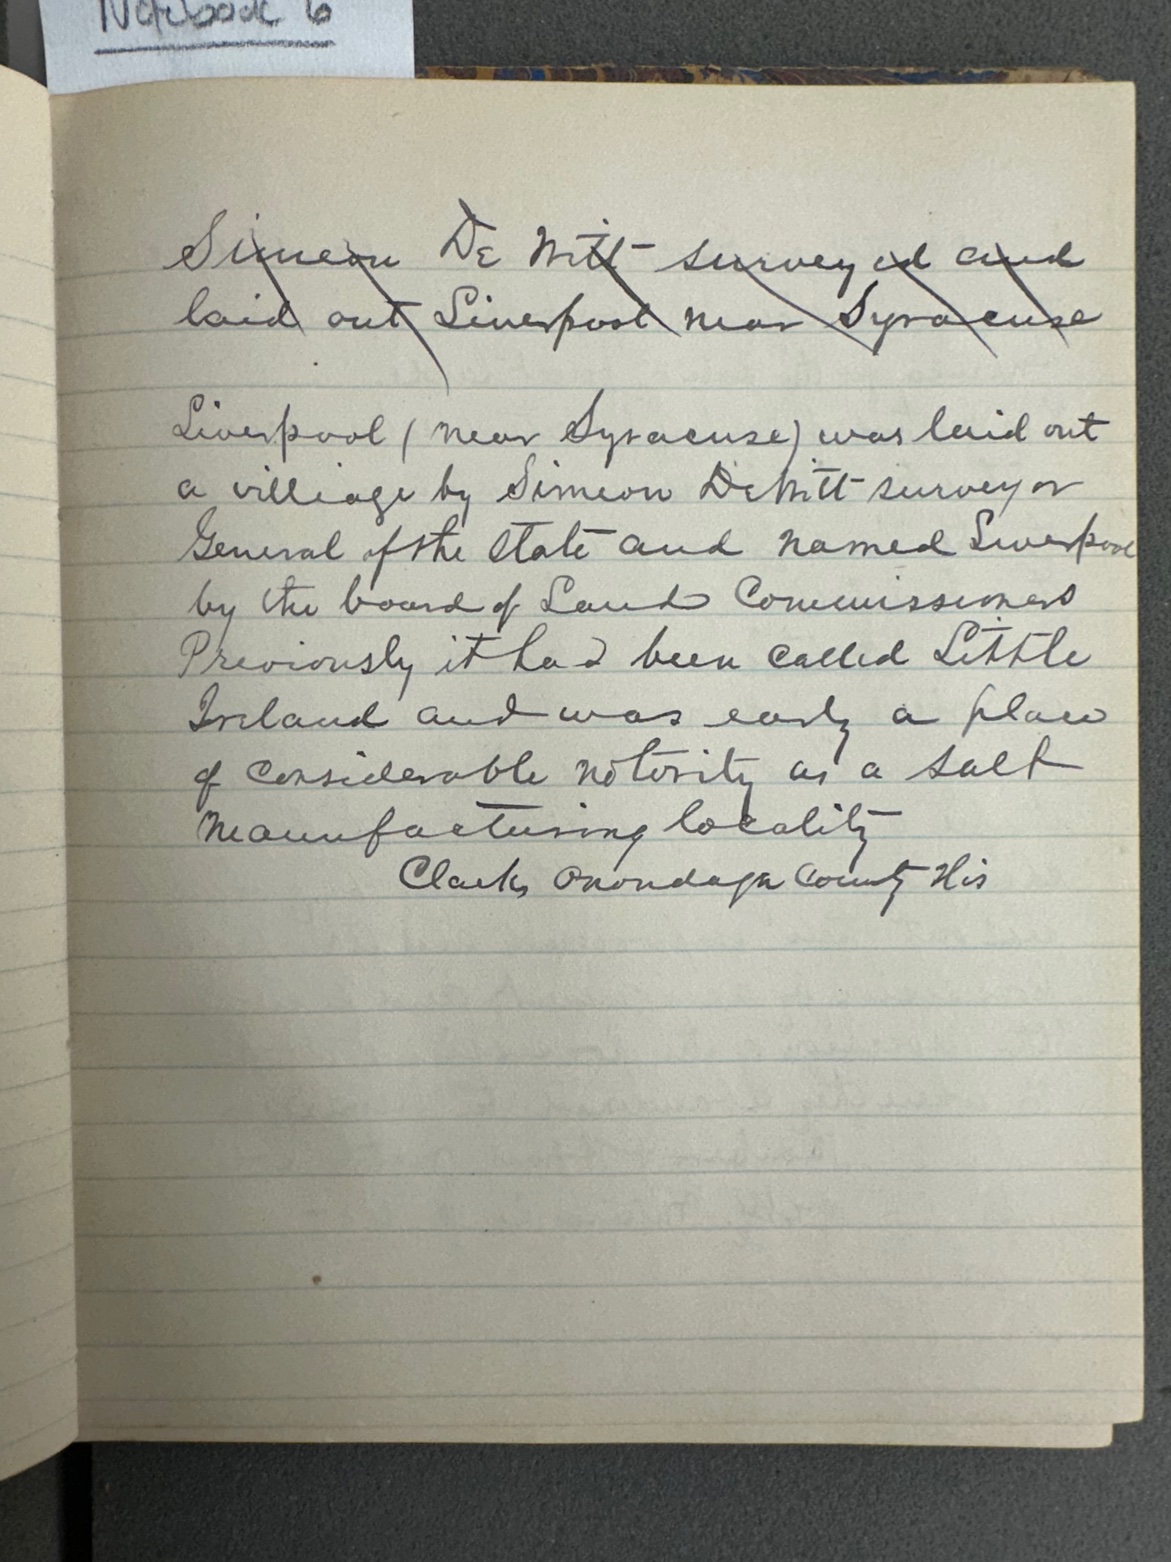 Notebook 6
Simeon De Witt surveyed and
laid out Liverpool near Syracuse
Liverpool (near Syracuse) was laid out
a villiage by Simeon DeWitt surveyor
General of the State and named Liverpool
by the board of Land Commissioners
Previously it had been called Little
Ireland and was early a place
of considerable notority as a salt
manufacturing locality
Clarks Onondaga County His